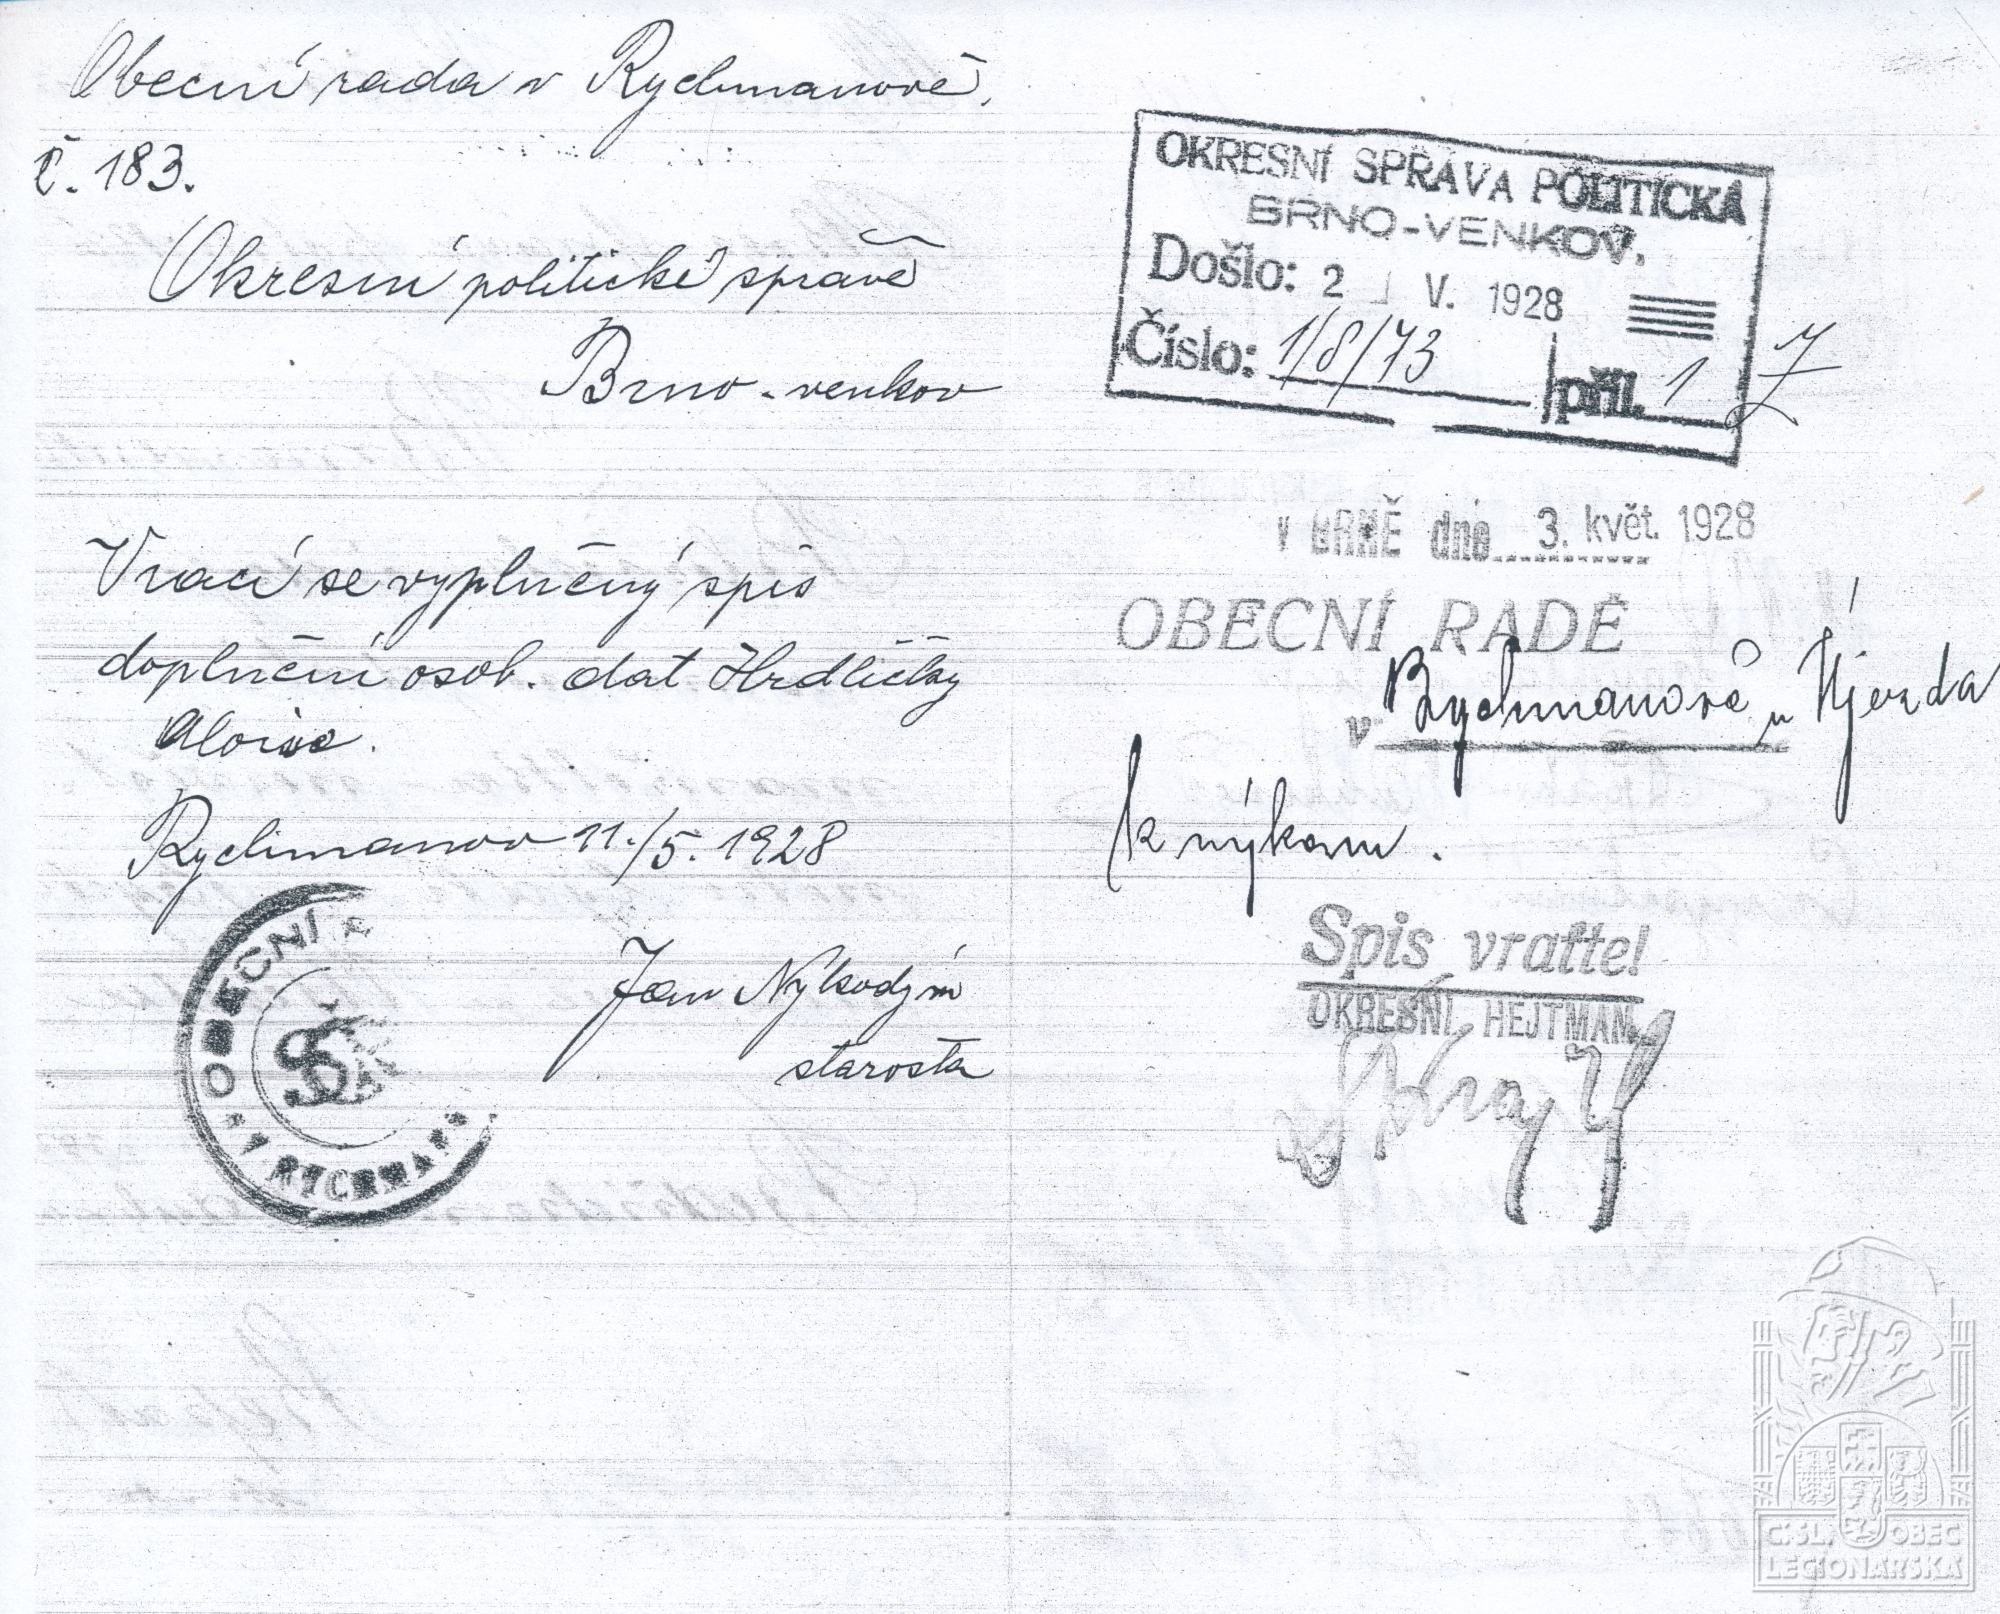 Obecní rada v Rychmanově,
č. 183.
Okresní politické správě
Brno - venkov
Vrací se vyplněný spis
doplnění osob. dat Hrdličky
Aloise.
Rychmanov 11./5. 1928
Jan Nykodým
starosta
OBECNÍ
V RYCHMAN
OKRESNÍ SPRÁVA POLITICKÁ
BRNO-VENKOV.
Došlo: 2 V. 1928
Číslo: 1/8/73 příl. 1
V BRNĚ dne 3. květ. 1928
OBECNÍ RADĚ
v Rychmanově u Újezda
k výkonu.
Spis vraťte!
OKRESNÍ HEJTMAN
Č. SL. OBEC
LEGIONÁŘSKÁ